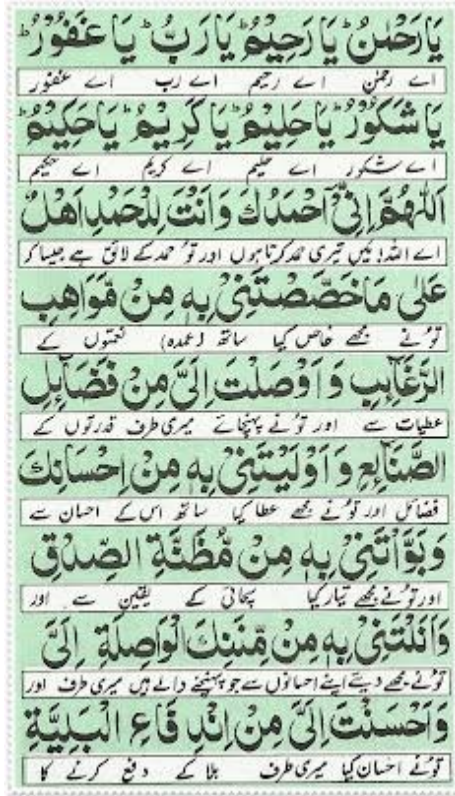 يَا رَحْمٰنُ يَا رَحِيْمُ يَا رَبُّ يَا غَفُوْرُ
اے رحمٰن اے رحیم اے رب اے غفور
يَا شَكُوْرُ يَا حَلِيْمُ يَا كَرِيْمُ يَا حَكِيْمُ
اے شکور اے حلیم اے کریم اے حکیم
اَللّٰهُمَّ اِنِّيْٓ اَحْمَدُكَ وَاَنْتَ لِلْحَمْدِ اَهْلٌ
اے اللہ! میں تیری حمد کرتا ہوں اور تو حمد کے لائق ہے جیسا کہ
عَلٰى مَا خَصَّصْتَنِيْ بِهٖ مِنْ مَّوَاهِبِ
تو نے مجھے خاص کیا ساتھ (عمدہ) نعمتوں کے
الرَّغَآئِبِ وَاَوْصَلْتَ اِلَيَّ مِنْ فَضَآئِلِ
عطیات سے اور تو نے پہنچائے میری طرف قدرتوں کے
الصَّنَآئِعِ وَاَوْلَيْتَنِيْ بِهٖ مِنْ اِحْسَانِكَ
فضائل اور تو نے مجھے عطا کیا ساتھ اس کے احسان سے
وَبَوَّأْتَنِيْ بِهٖ مِنْ مَّظَنَّةِ الصِّدْقِ
اور تو نے مجھے تیار کیا سچائی کے یقین سے اور
وَاَنَلْتَنِيْ بِهٖ مِنْ مِّنَنِكَ الْوَاصِلَةِ اِلَيَّ
تو نے مجھے دیئے اپنے احسانوں سے جو پہنچنے والے ہیں میری طرف اور
وَاَحْسَنْتَ اِلَيَّ مِنْ اِنْدِفَاعِ الْبَلِيَّةِ
تو نے احسان کیا میری طرف بلا کے دفع کرنے کا